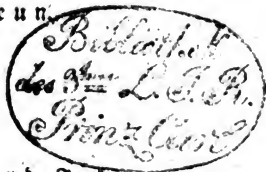 eun
Bibliothek
des 3ten L. J. R.
Prinz Carl